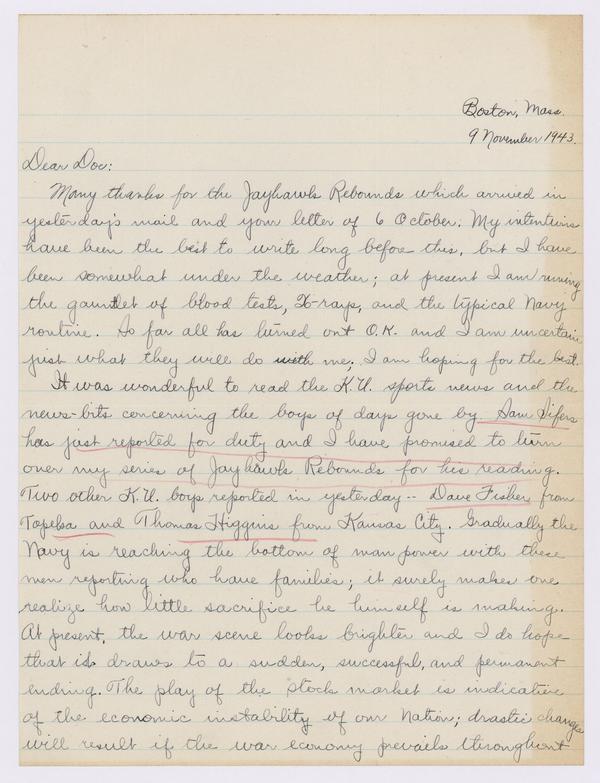 Boston, Mass.
9 November 1943.
Dear Doc:
Many thanks for the Jayhawk Rebounds which arrived in
yesterday's mail and your letter of 6 October. My intentions
have been the best to write long before this, but I have
been somewhat under the weather; at present I am runing
the gauntlet of blood tests, X-rays, and the typical Navy
routine. So far all has turned out O.K. and I am uncertain
just what they will do with me; I am hoping for the best.
It was wonderful to read the K.U. sports news and the
news-bits concerning the boys of days gone by. Sam Sifers
has just reported for duty and I have promised to turn
over my series of Jayhawk Rebounds for his reading.
Two other K.U. boys reported in yesterday -- Dave Fisher from
Topeka and Thomas Higgins from Kansas City. Gradually the
Navy is reaching the bottom of man power with these
men reporting who have families; it surely makes one
realize how little sacrifice he himself is making.
At present, the war scene looks brighter and I do hope
that it draws to a sudden, successful, and permanent
ending. The play of the stock market is indicative
of the economic instability of our Nation; drastic changes
will result if the war economy prevails throughout